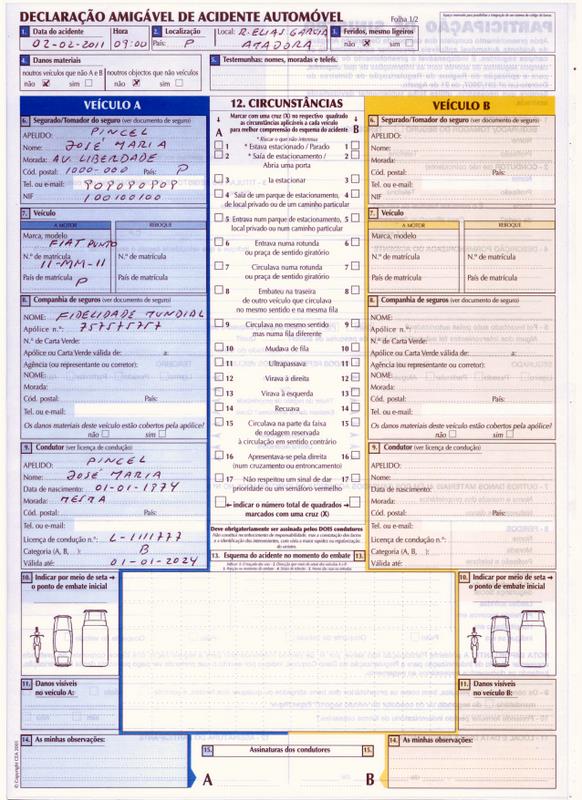 DECLARAÇÃO AMIGÁVEL DE ACIDENTE AUTOMÓVEL Folha 1/2
1. Data do acidente Hora 2. Localização Local: R. ELIAS GARCIA 3. Feridos, mesmo ligeiros
02-02-2011 09:00 País: P AMADORA não X sim
4. Danos materiais 5. Testemunhas: nomes, moradas e telefs.
noutros veículos que não A e B noutros objectos que não veículos
não X sim não X sim
VEÍCULO A
6. Segurado/Tomador do seguro (ver documento de seguro)
APELIDO: PINCEL
Nome: JOSÉ MARIA
Morada: AV. LIBERDADE
Cód. postal: 1000-000 País: P
Tel. ou e-mail: 909090909
NIF 100100100
7. Veículo
A MOTOR REBOQUE
Marca, modelo
FIAT PUNTO
N.º de matrícula N.º de matrícula
11-MM-11
País de matrícula País de matrícula
P
8. Companhia de seguros (ver documento de seguro)
NOME: FIDELIDADE MUNDIAL
Apólice n.º: 757575757
N.º de Carta Verde:
Apólice ou Carta Verde válida de: a:
Agência (ou representante ou corretor):
NOME:
Morada:
Cód. postal: País:
Tel. ou e-mail:
Os danos materiais deste veículo estão cobertos pela apólice?
não sim
9. Condutor (ver licença de condução)
APELIDO: PINCEL
Nome: JOSÉ MARIA
Data de nascimento: 01-01-1974
Morada: MESMA
Cód. postal: País:
Tel. ou e-mail:
Licença de condução n.º: L-1111777
Categoria (A, B, ): B
Válida até: 01-01-2024
12. CIRCUNSTÂNCIAS
Marcar com uma cruz (X) no respectivo quadrado
as circunstâncias aplicáveis a cada veículo
para melhor compreensão do esquema do acidente
A B
* Riscar o que não interessa
1 * Estava estacionado / Parado 1
2 * Saía de estacionamento / 2
Abria uma porta
3 Ia estacionar 3
4 Saía de um parque de estacionamento, 4
de local privado ou de um caminho particular
5 Entrava num parque de estacionamento, 5
local privado ou num caminho particular
6 Entrava numa rotunda 6
ou praça de sentido giratório
7 Circulava numa rotunda 7
ou praça de sentido giratório
8 Embateu na traseira 8
de outro veículo que circulava
no mesmo sentido e na mesma fila
9 Circulava no mesmo sentido 9
mas numa fila diferente
10 Mudava de fila 10
11 Ultrapassava 11
12 Virava à direita 12
13 Virava à esquerda 13
14 Recuava 14
15 Circulava na parte da faixa 15
de rodagem reservada
à circulação em sentido contrário
16 Apresentava-se pela direita 16
(num cruzamento ou entroncamento)
17 Não respeitou um sinal de dar 17
prioridade ou um semáforo vermelho
← indicar o número total de quadrados →
marcados com uma cruz (X)
Deve obrigatoriamente ser assinada pelos DOIS condutores
13. Esquema do acidente no momento do embate 13.
VEÍCULO B
6. Segurado/Tomador do seguro (ver documento de seguro)
APELIDO:
Nome:
Morada:
Cód. postal: País:
Tel. ou e-mail:
NIF
7. Veículo
A MOTOR REBOQUE
Marca, modelo
N.º de matrícula N.º de matrícula
País de matrícula País de matrícula
8. Companhia de seguros (ver documento de seguro)
NOME:
Apólice n.º:
N.º de Carta Verde:
Apólice ou Carta Verde válida de: a:
Agência (ou representante ou corretor):
NOME:
Morada:
Cód. postal: País:
Tel. ou e-mail:
Os danos materiais deste veículo estão cobertos pela apólice?
não sim
9. Condutor (ver licença de condução)
APELIDO:
Nome:
Data de nascimento:
Morada:
Cód. postal: País:
Tel. ou e-mail:
Licença de condução n.º:
Categoria (A, B, ):
Válida até:
10. Indicar por meio de seta →
o ponto de embate inicial
10. Indicar por meio de seta →
o ponto de embate inicial
11. Danos visíveis
no veículo A:
11. Danos visíveis
no veículo B:
14. As minhas observações:
15. Assinaturas dos condutores 15.
A B
14. As minhas observações:
© Copyright CEA 2001